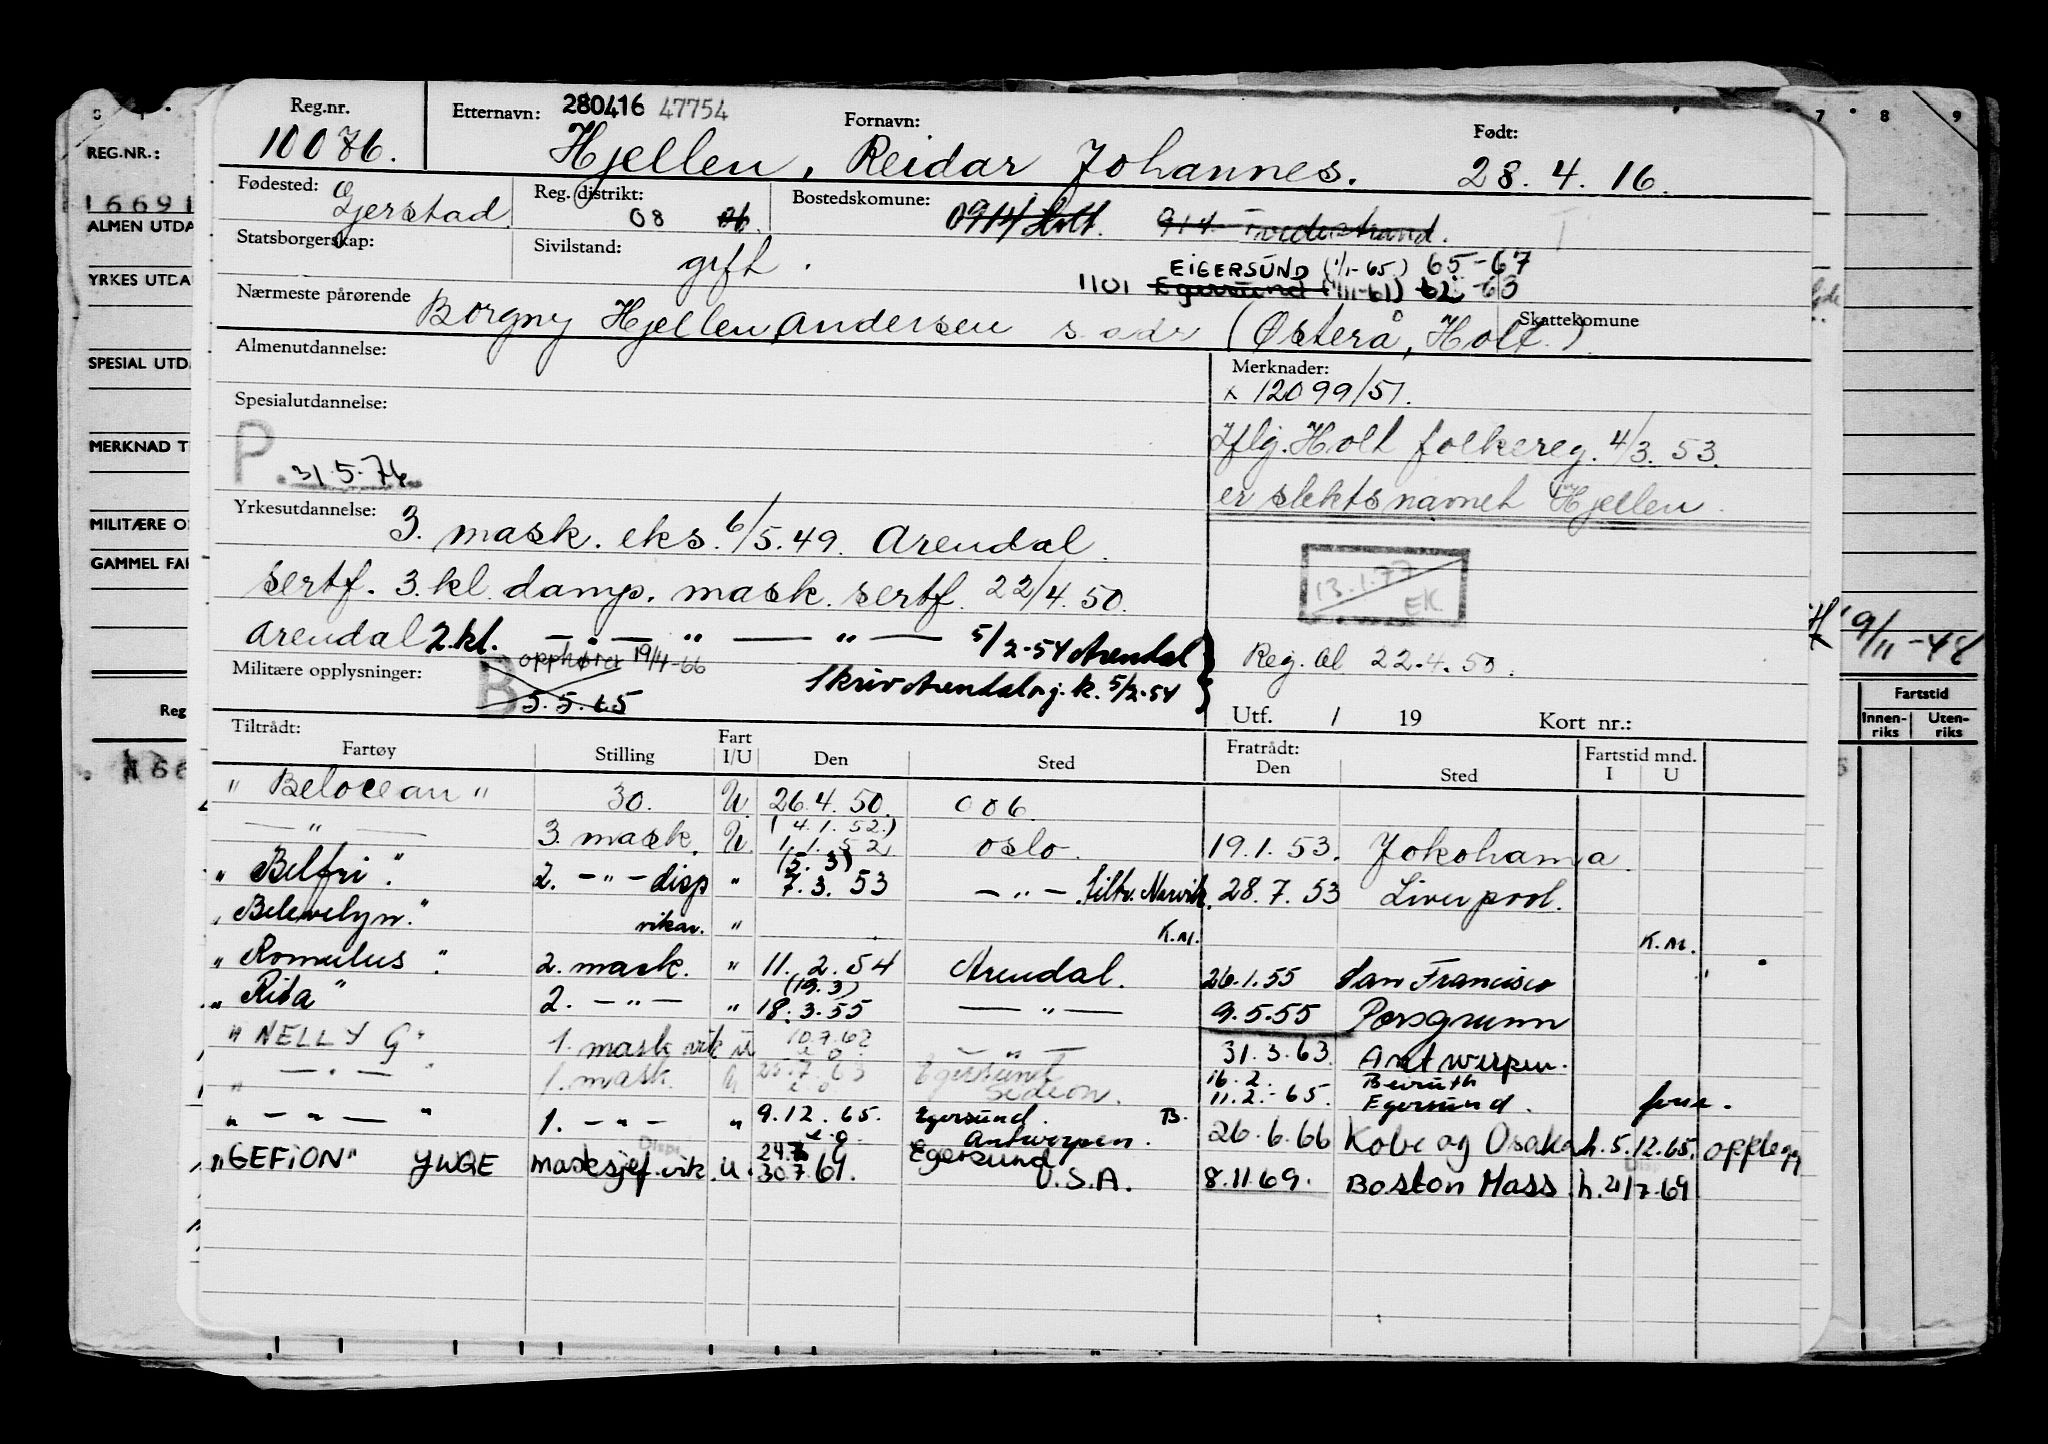 Reg.nr. Etternavn: 280416 47754 Fornavn: Født:
10076. Hjellen, Reidar Johannes. 28. 4. 16.
Fødested: Gjerstad Reg. distrikt: 08 06. Bostedskomune: 0914 Holt. 914 Tvedestrand.
Statsborgerskap: Sivilstand: gift.
EIGERSUND (1/1-65) 65-67
1101 Egersund (1/11-61) 62-63
Nærmeste pårørende Borgny Hjellen, Andersen s. adr (Østerå, Holt.) Skattekomune
Almenutdannelse: Merknader:
x 12099/51.
Spesialutdannelse: Iflg. Holt folkereg. 4/3. 53.
P. 31.5.76 er slektsnamet Hjellen.
Yrkesutdannelse: 3. mask. eks. 6/5. 49. Arendal.
sertf. 3. kl. damp. mask. sertf. 22/4. 50.
13.1.77 EK
Arendal 2.kl. — " — " — " — 5/2-54 Arendal
opphører 19/4-66 Reg. Al 22.4.50.
Militære opplysninger: B 5.5.65 Skriv Arendal 5/2-54
Utf. / 19 Kort nr.:
Tiltrådt: Fart Fratrådt: Fartstid mnd.
Fartøy Stilling I/U Den Sted Den Sted I U
" Belocean " 30. U 26.4.50. 006.
— " — 3. mask. U. (4.1.52.) 1.1.52 Oslo. 19.1.53. Jokohama.
" Belfri ". 2. — " — disp " (5.3) 7.3.53 — " — tiltr. Narvik. 28.7.53 Liverpool.
" Belevelyn." vikar. " K.M. K.M.
" Romulus ". 2. mask. " 11.2.54 Arendal. 26.1.55 San Francisco "
" Rita " 2. — " — " (19.3) 18.3.55 — " — 9.5.55 Porsgrunn
" NELLY G " 1. mask vik u 10.7.62 — " — 31.3.63. Antwerpen.
" — " — " 1. mask. U 63 Egersund 16.2. Beiruth
11.2.-65. Egersund.
" — " — " 1. — " — " 9.12.65. Egersund. B.
e.o. Antwerpen. 26.6.66 Kobe og Osaka h. 5.12.65. opplegg
"GEFION" JWGE Masksjef. vik. U. 24.7 30.7.69. Egersund U.S.A. 8.11.69. Boston Mass h. 21/7-69
REG.NR.:
16691
ALMEN UTDA
YRKES UTDA
SPESIAL UTD
MERKNAD T
MILITÆRE O
GAMMEL FAR
Reg
7 8 9
9/11-48
Fartstid
Innen-riks Uten-riks